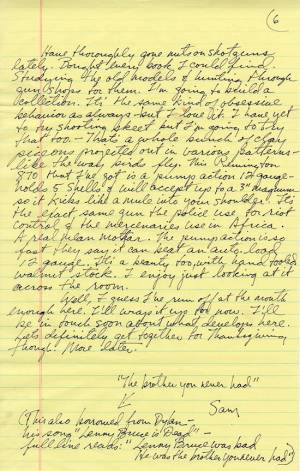 6
Have thoroughly gone nuts on shotguns
lately. Bought every book I could find.
Studying the old models & hunting through
gun shops for them. I'm going to build a
collection. It's the same kind of obsessive
behavior as always - but I love it. I have yet
to try shooting skeet but I'm going to try
that too - That's a whole bunch of clay
pigeons projected out in various patterns -
like the way birds fly. This Remington
870 that I've got is a pump action 12 gauge -
holds 5 shells & will accept up to a 3" magnum
so it kicks like a mule into your shoulder! It's
the exact same gun the police use for riot
control & the mercenaries use in Africa.
A real mean mother. The pump action is so
fast they say it can beat an auto load
12 gauge. It's a beauty too, with hand tooled
walnut stock. I enjoy just looking at it
across the room.
Well, I guess I've run off at the mouth
enough here. I'll wrap it up for now. I'll
be in touch soon about what develops here.
Let's definitely get together for Thanksgiving
though! More later.
"The brother you never had"
Sam
(This also borrowed from Dylan -
his song "Lenny Bruce is Dead" -
full line reads: "Lenny Bruce was bad
He was the brother you never had")